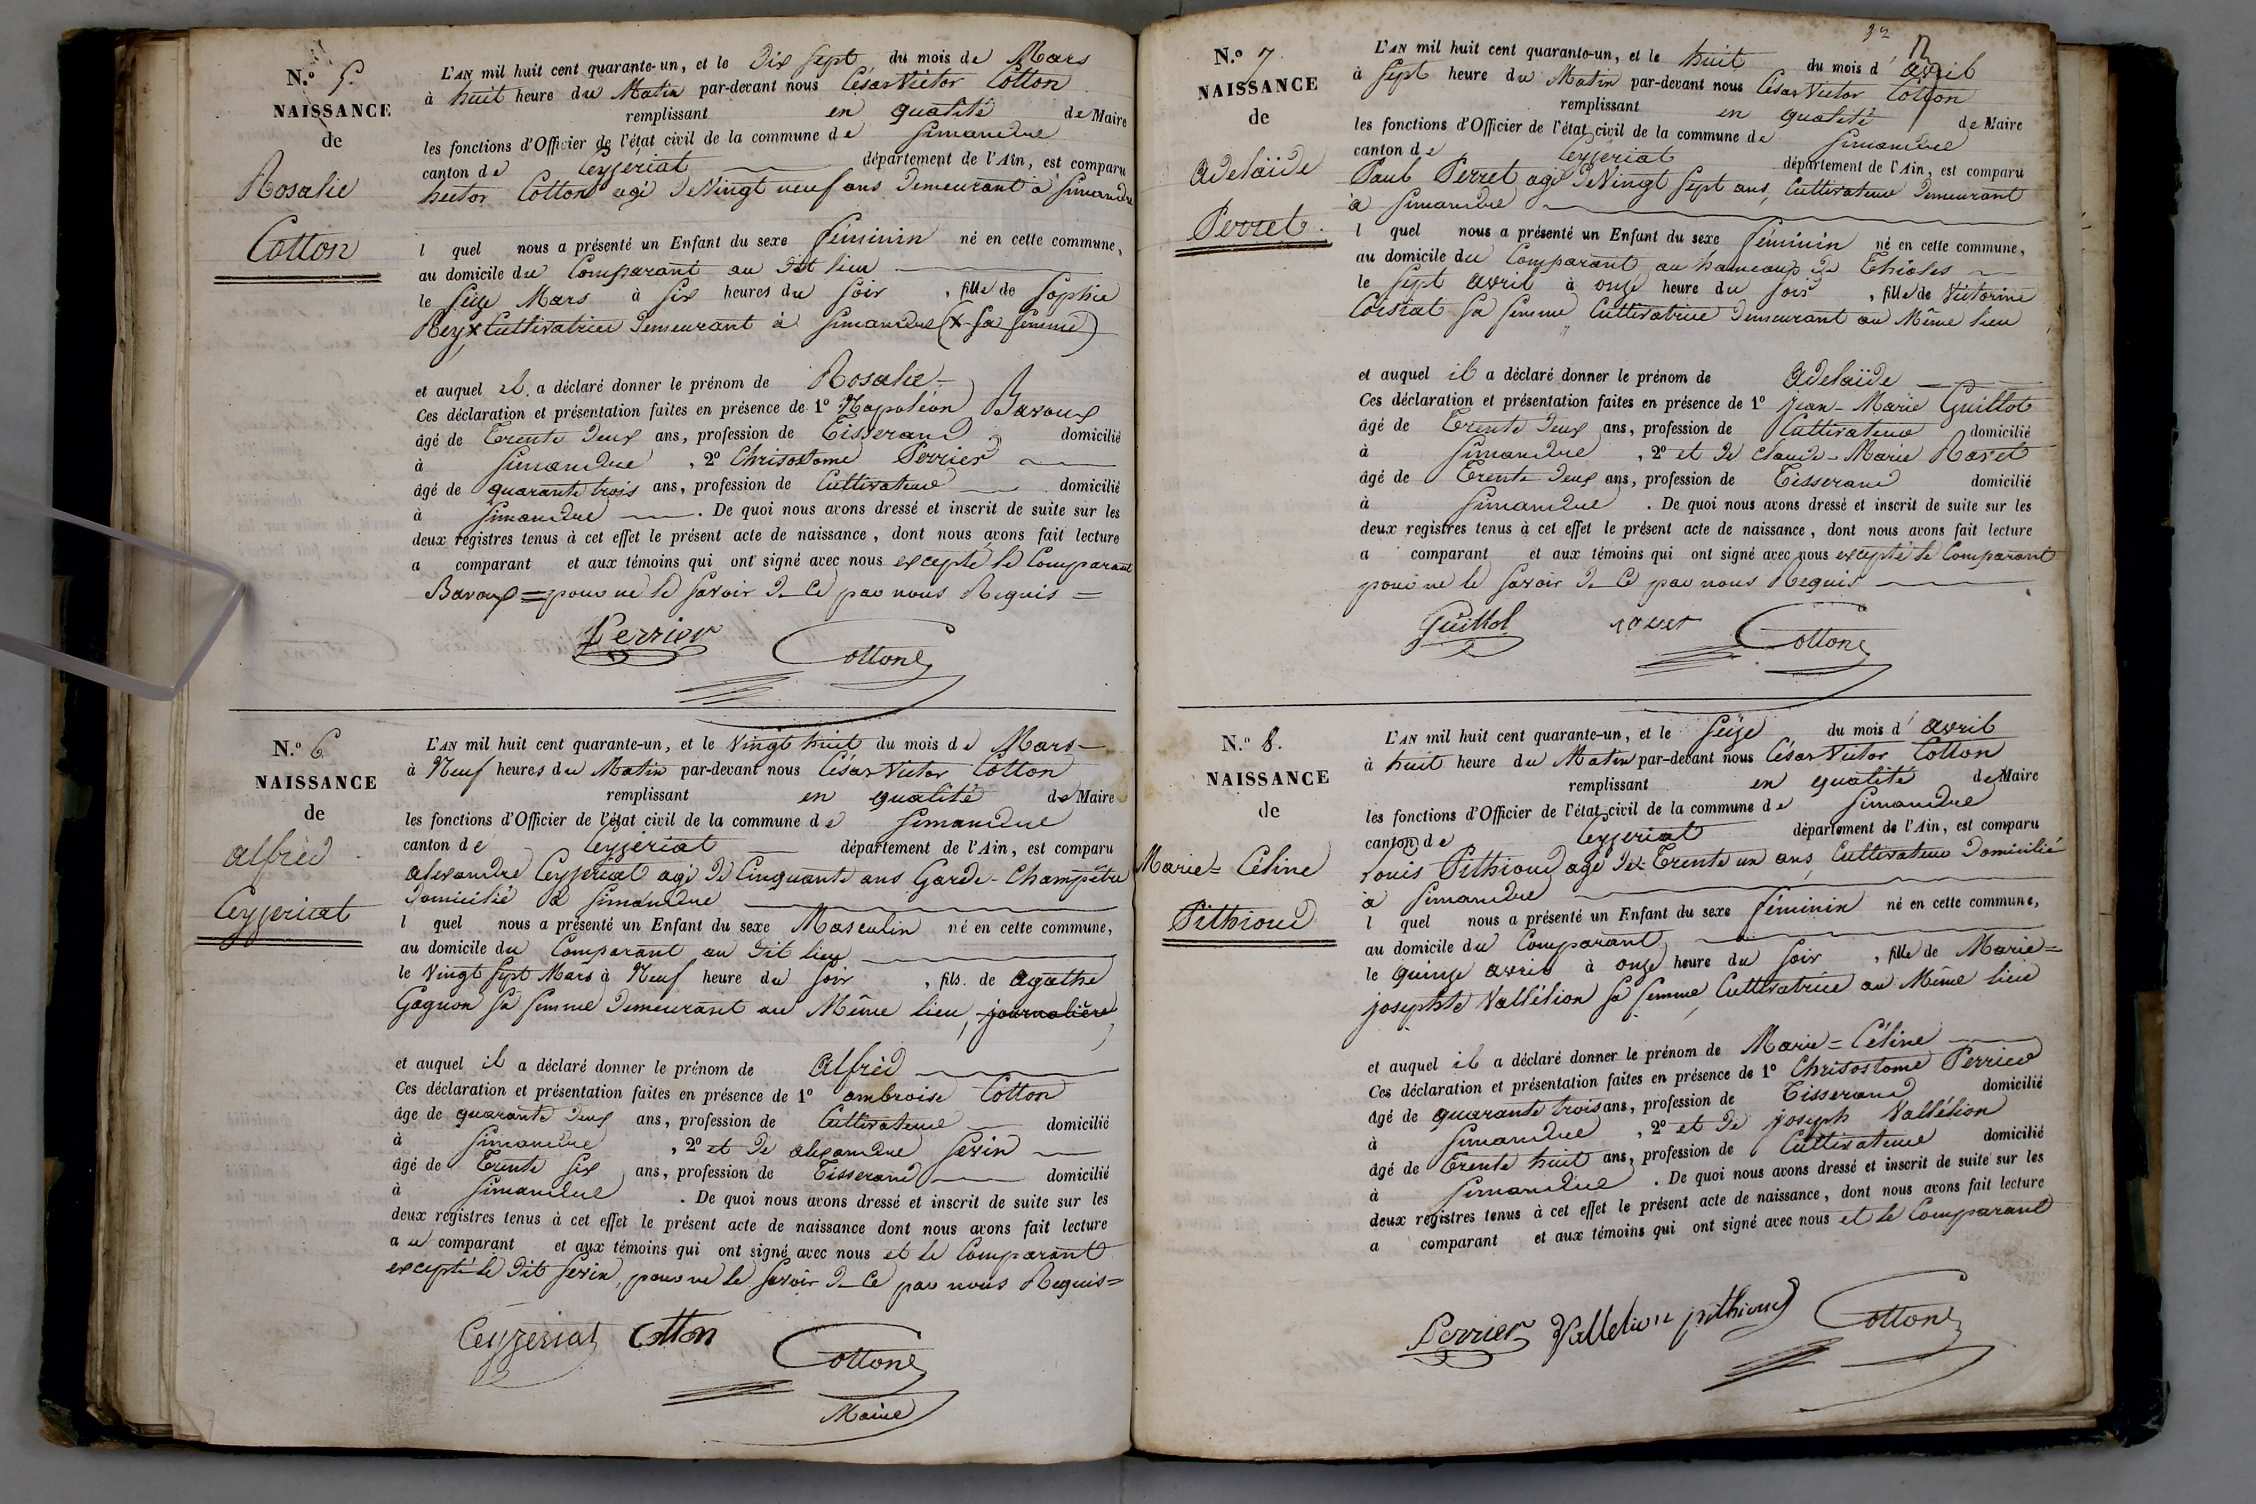 N.º 5.
NAISSANCE
de
Rosalie
Cotton
L'AN mil huit cent quarante-un, et le Dix Sept du mois de Mars
à huit heure du Matin par-devant nous César Victor Cotton
remplissant en qualité de Maire
les fonctions d'Officier de l'état civil de la commune de Simandre
canton de Ceyzeriat département de l'Ain, est comparu
hector Cotton agé de Vingt neuf ans Demeurant à Simandre
l quel nous a présenté un Enfant du sexe féminin né en cette commune,
au domicile du Comparant au dit lieu
le Seize Mars à Six heures du Soir, fille de Sophie
Rey x Cultivatrice Demeurant à Simandre (x Sa femme)
et auquel il a déclaré donner le prénom de Rosalie
Ces déclaration et présentation faites en présence de 1º Napoléon Bavoux
âgé de Trente Deux ans, profession de Tisserand domicilié
à Simandre, 2º Chrisostome Perrier
âgé de quarante trois ans, profession de Cultivateur domicilié
à Simandre. De quoi nous avons dressé et inscrit de suite sur les
deux registres tenus à cet effet le présent acte de naissance, dont nous avons fait lecture
a comparant et aux témoins qui ont signé avec nous excepté le Comparant
Bavoux = pour ne le Savoir De Ce par nous Requis =
Perrier Cotton
N.º 6
NAISSANCE
de
alfred
Ceyzeriat
L'AN mil huit cent quarante-un, et le Vingt huit du mois de Mars
à Neuf heures du Matin par-devant nous César Victor Cotton
remplissant en qualité de Maire
les fonctions d'Officier de l'état civil de la commune de Simandre
canton de Ceyzeriat département de l'Ain, est comparu
alexandre Ceyzeriat agé de Cinquante ans Garde-Champêtre
Domicilié à Simandre
l quel nous a présenté un Enfant du sexe Masculin né en cette commune,
au domicile du Comparant au dit lieu
le Vingt Sept Mars à Neuf heure du Soir, fils. de agathe
Gagnon Sa femme Demeurant au Même lieu, journalière
et auquel il a déclaré donner le prénom de Alfred
Ces déclaration et présentation faites en présence de 1º ambroise Cotton
âge de quarante Deux ans, profession de Cultivateur domicilié
à Simandre, 2º et De alexandre Serin
âgé de Trente Six ans, profession de Tisserand domicilié
à Simandre. De quoi nous avons dressé et inscrit de suite sur les
deux registres tenus à cet effet le présent acte de naissance dont nous avons fait lecture
a u comparant et aux témoins qui ont signé avec nous et le Comparant
excepté le Dit Serin, pour ne le Savoir De Ce par nous Requis =
Ceyzeriat Cotton Cotton
Maire
92
N.º 7
NAISSANCE
de
Adelaïde
Perret.
L'AN mil huit cent quarante-un, et le huit du mois d'avril
à Sept heure du Matin par-devant nous César Victor Cotton
remplissant en qualité de Maire
les fonctions d'Officier de l'état civil de la commune de Simandre
canton de Ceyzeriat département de l'Ain, est comparu
Paul Perret agé de Vingt Sept ans, Cultivateur Demeurant
a Simandre
l quel nous a présenté un Enfant du sexe féminin né en cette commune,
au domicile du Comparant au hameaup de Thioles
le Sept avril à onze heure du Soir, fille de Victorine
Corsrat Sa femme Cultivatrice Demeurant au Même lieu
et auquel il a déclaré donner le prénom de Adelaïde
Ces déclaration et présentation faites en présence de 1º Jean-Marie Guillot
âgé de Trente Deux ans, profession de Cultivateur domicilié
à Simandre, 2º et De Claude-Marie Ravet
âgé de Trente Deux ans, profession de Tisserand domicilié
à Simandre. De quoi nous avons dressé et inscrit de suite sur les
deux registres tenus à cet effet le présent acte de naissance, dont nous avons fait lecture
a comparant et aux témoins qui ont signé avec nous excepté le Comparant
pour ne le Savoir De Ce par nous Requis
Guillot ravet Cotton
N.º 8.
NAISSANCE
de
Marie=Céline
Pithioud
L'AN mil huit cent quarante-un, et le Seize du mois d'avril
à huit heure du Matin par-devant nous César Victor Cotton
remplissant en qualité de Maire
les fonctions d'Officier de l'état civil de la commune de Simandre
canton de Ceyzeriat département de l'Ain, est comparu
Louis Pithioud agé de Trente un ans, Cultivateur Domicilié
à Simandre
l quel nous a présenté un Enfant du sexe féminin né en cette commune,
au domicile du Comparant
le quinze avril à onze heure du Soir, fille de Marie=
josephte Vallélion Sa femme, Cultivatrice au Même lieu
et auquel il a déclaré donner le prénom de Marie=Céline
Ces déclaration et présentation faites en présence de 1º Chrisostome Perrier
âgé de quarante trois ans, profession de Tisserand domicilié
à Simandre, 2º et De joseph Vallélion
âgé de Trente huit ans, profession de Cultivateur domicilié
à Simandre. De quoi nous avons dressé et inscrit de suite sur les
deux registres tenus à cet effet le présent acte de naissance, dont nous avons fait lecture
a comparant et aux témoins qui ont signé avec nous et le Comparant
Perrier Vallelion pithioud Cotton